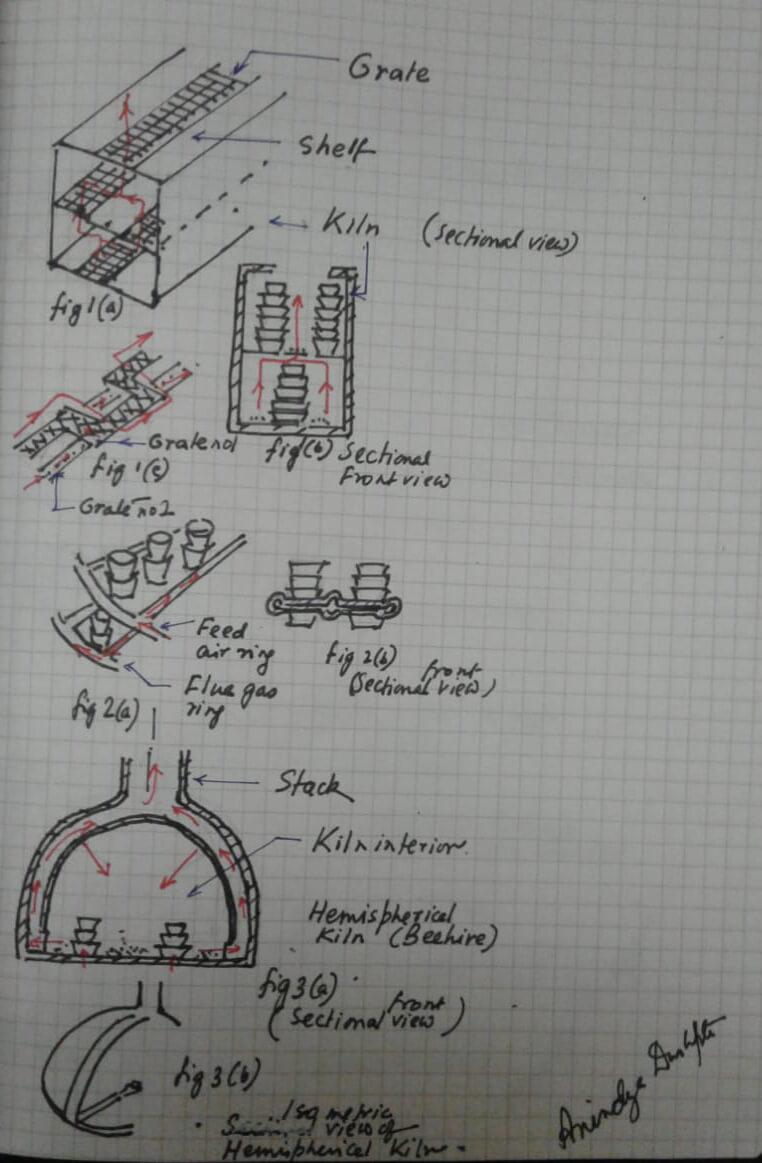 Grate
Shelf
Kiln (sectional view)
fig 1(a)
Grate no1
fig(b) Sectional
Front view
fig 1(c)
Grate no 2
Feed
air ring
fig 2(b)
front
(Sectional view)
Flue gas
ring
fig 2(a)
Stack
Kiln interior.
Hemispherical
Kiln (Beehive)
fig 3(a)
front
(Sectional view)
fig 3(b)
Isometric
view of
Hemispherical Kiln.
Anindya